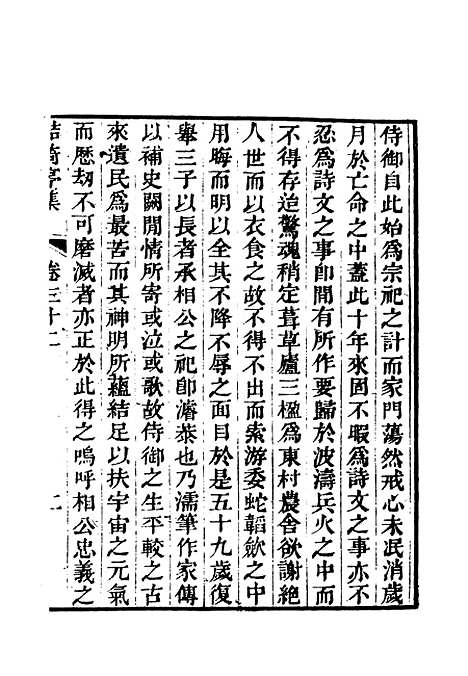 侍御自此始爲宗祀之計而家門蕩然戒心未泯消歲
月於亡命之中蓋此十年來固不暇爲詩文之事亦不
忍爲詩文之事卽間有所作要歸於波濤兵火之中而
不得存迨驚魂稍定葺草廬三楹爲東村農舍欲謝絕
人世而以衣食之故不得不出而索游委蛇韜歛之中
用晦而明以全其不降不辱之面目於是五十九歲復
舉三子以長者承相公之祀卽濬恭也乃濡筆作家傳
以補史闕閒情所寄或泣或歌故侍御之生平較之古
來遺民爲最苦而其神明所蘊結足以扶宇宙之元氣
而歷劫不可磨滅者亦正於此得之嗚呼相公忠義之
鮚埼亭集 卷三十二 二